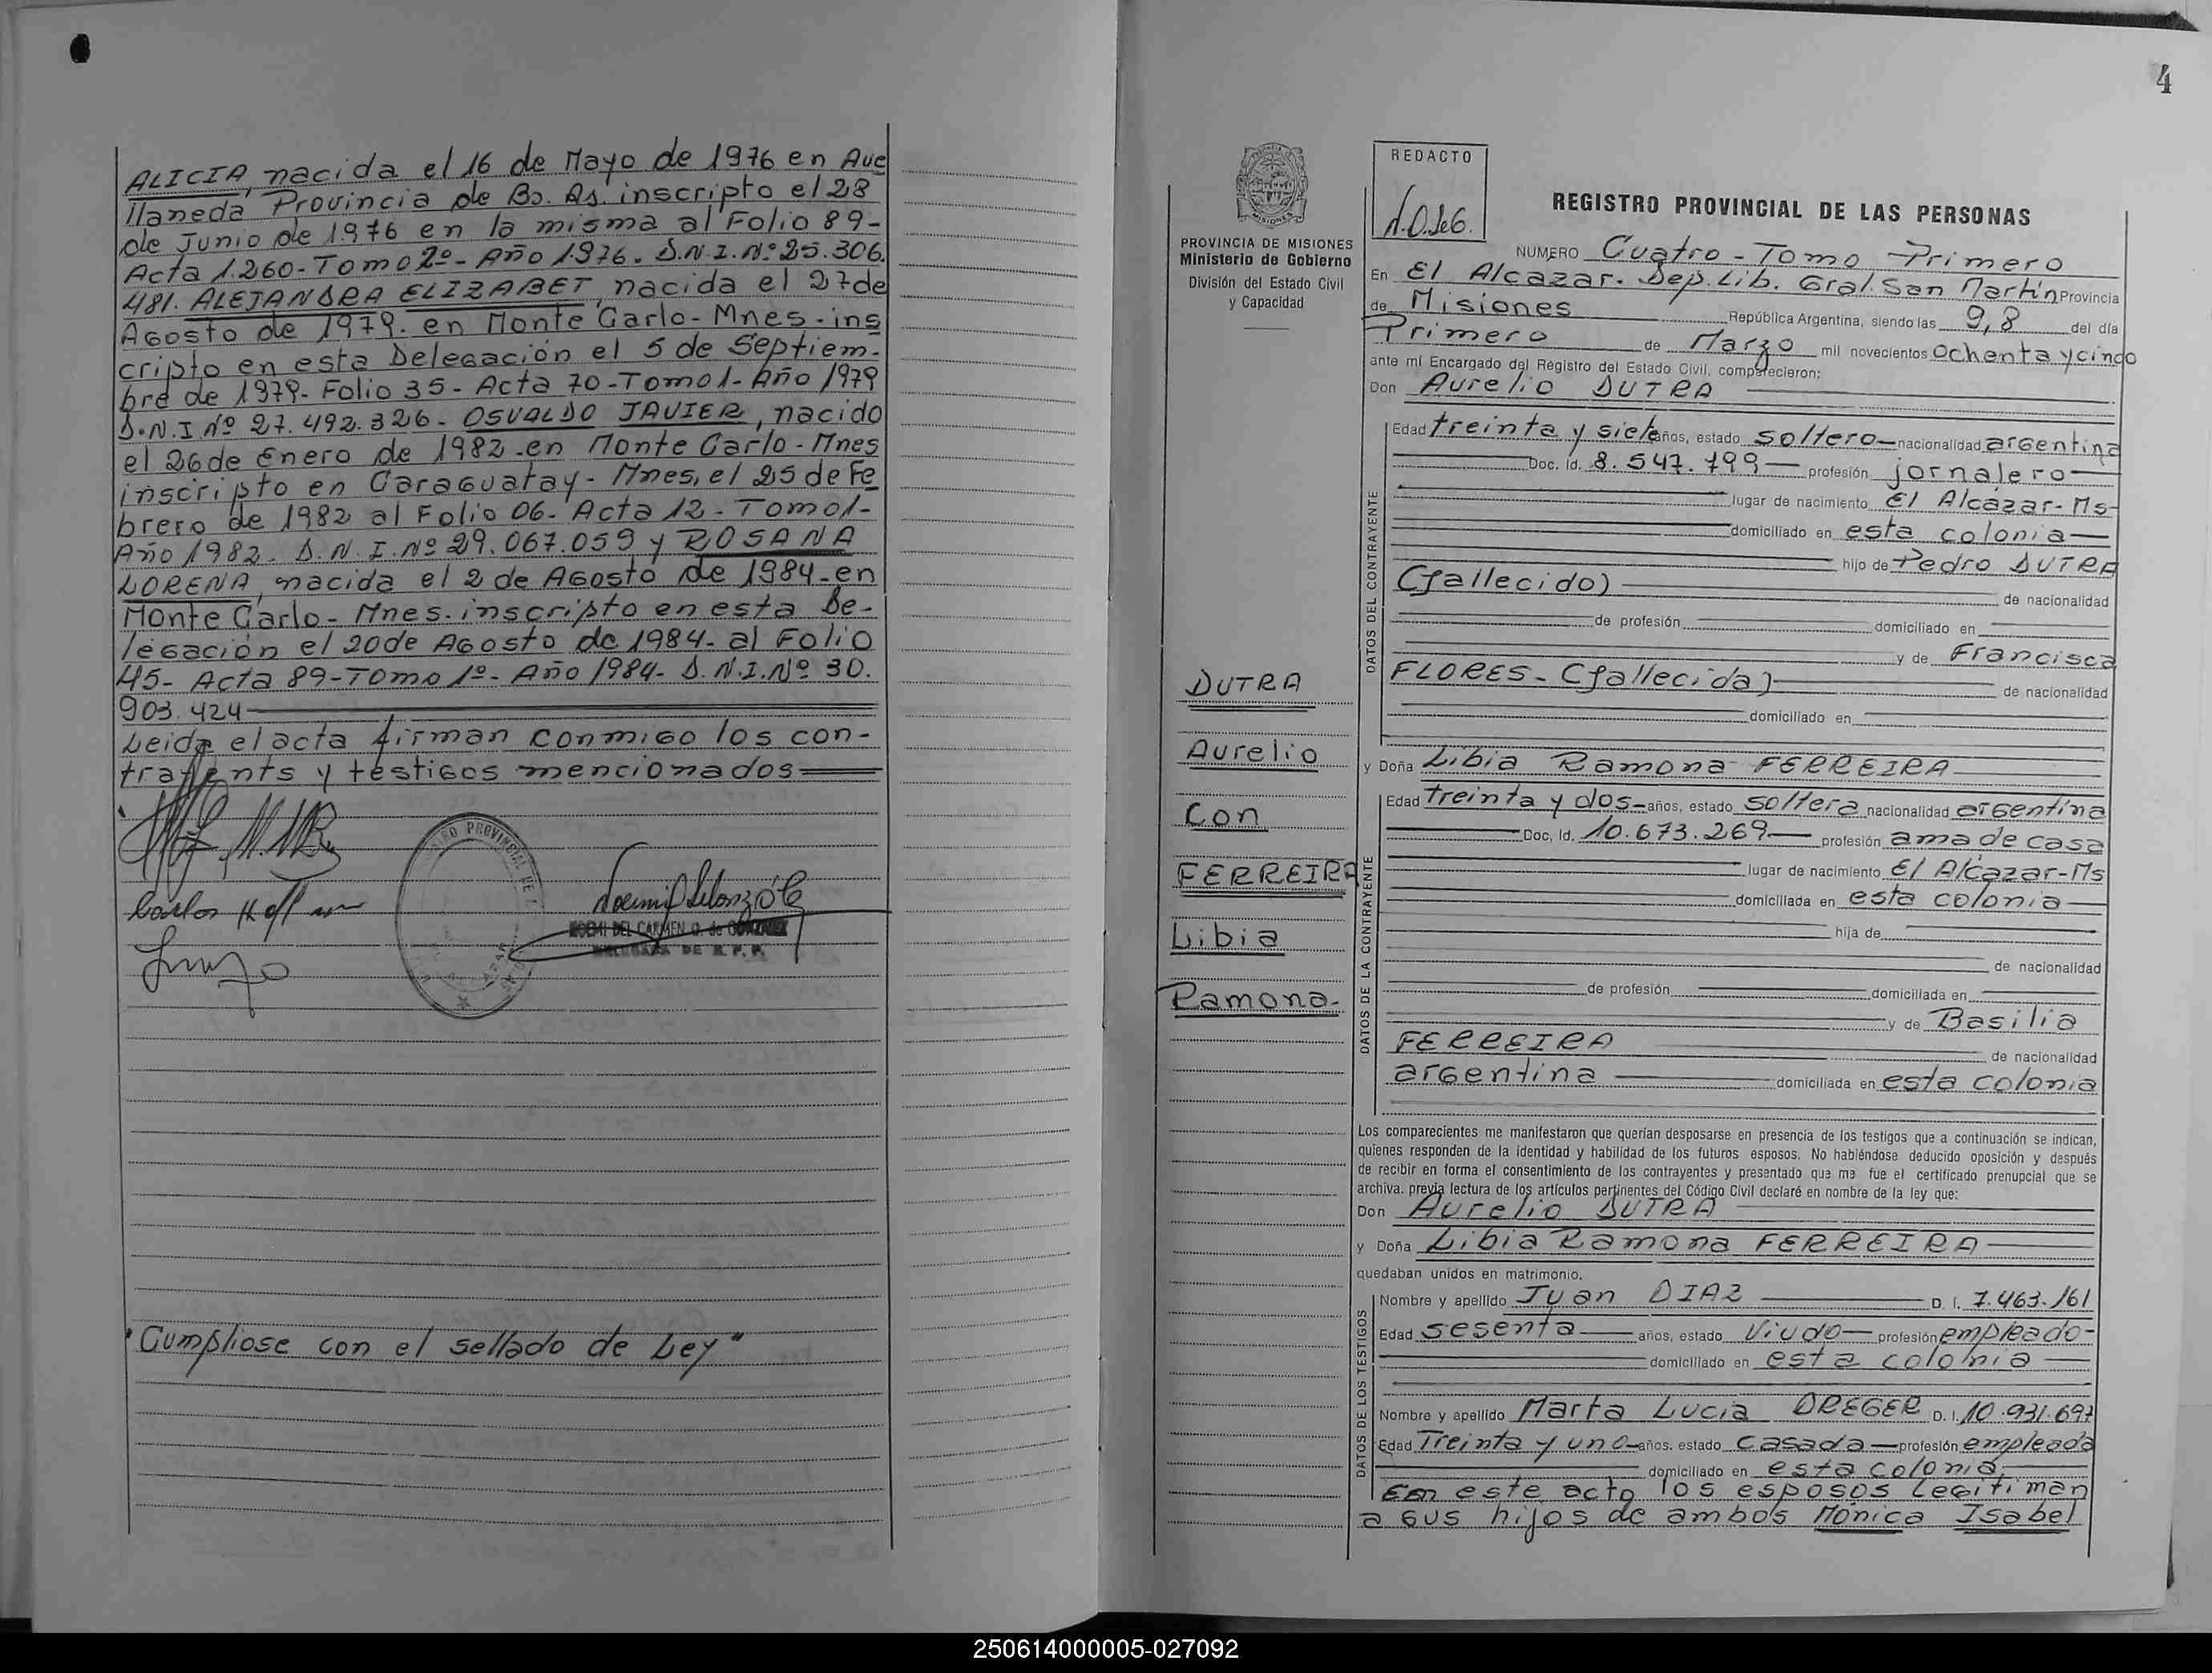 ALICIA, nacida el 16 de Mayo de 1976 en Ave
llaneda Provincia de Bs. As. inscripto el 28
de Junio de 1976 en la misma al Folio 89-
Acta 1.260-Tomo 2º- Año 1976. D.N.I. Nº 25.306.
481. ALEJANDRA ELIZABET, nacida el 27 de
Agosto de 1979. en Monte Carlo- Mnes- ins
cripto en esta Delegación el 5 de Septiem-
bre de 1979- Folio 35- Acta 70-Tomo 1- Año 1979
D.N.I Nº 27.492.326- OSVALDO JAVIER, nacido
el 26 de Enero de 1982 en Monte Carlo- Mnes
inscripto en Caraguatay- Mnes, el 25 de Fe
brero de 1982 al Folio 06- Acta 12- Tomo 1-
Año 1982. D.N.I. Nº 29.067.059 y ROSANA
LORENA, nacida el 2 de Agosto de 1984-en
Monte Carlo- Mnes. inscripto en esta De-
legación el 20 de Agosto de 1984- al Folio
45- Acta 89-Tomo 1º- Año 1984- D.N.I. Nº 30.
903.424
Leida el acta firman conmigo los con-
trayents y testigos mencionados
NOEMI DEL CARMEN O. de GONZALEZ
DELEGADA DE R. P. P.
"Cumpliose con el sellado de Ley"
4
PROVINCIA DE MISIONES
Ministerio de Gobierno
División del Estado Civil
y Capacidad
DUTRA
Aurelio
Con
FERREIRA
Libia
Ramona-
REDACTO
REGISTRO PROVINCIAL DE LAS PERSONAS
NUMERO Cuatro- Tomo Primero
En El Alcazar. Dep. Lib. Gral. San Martín Provincia
de Misiones República Argentina, siendo las 9,8 del día
Primero de Marzo mil novecientos Ochenta y cinco
ante mí Encargado del Registro del Estado Civil, comparecieron:
Don Aurelio DUTRA
DATOS DEL CONTRAYENTE
Edad treinta y siete años, estado soltero nacionalidad argentina
Doc. Id. 8.547.799 profesión jornalero
lugar de nacimiento El Alcázar-Ms-
domiciliado en esta colonia
hijo de Pedro DUTRA
(fallecido) de nacionalidad
de profesión domiciliado en
y de Francisca
FLORES- (fallecida) de nacionalidad
domiciliado en
y Doña Libia Ramona FERREIRA
DATOS DE LA CONTRAYENTE
Edad treinta y dos años, estado soltera nacionalidad argentina
Doc. Id. 10.673.269 profesión ama de casa
lugar de nacimiento El Alcázar-Ms
domiciliada en esta colonia
hija de
de nacionalidad
de profesión domiciliada en
y de Basilia
FERREIRA de nacionalidad
argentina domiciliada en esta colonia
Los comparecientes me manifestaron que querían desposarse en presencia de los testigos que a continuación se indican,
quienes responden de la identidad y habilidad de los futuros esposos. No habiéndose deducido oposición y después
de recibir en forma el consentimiento de los contrayentes y presentado que me fue el certificado prenupcial que se
archiva. previa lectura de los artículos pertinentes del Código Civil declaré en nombre de la ley que:
Don Aurelio DUTRA
y Doña Libia Ramona FERREIRA
quedaban unidos en matrimonio.
DATOS DE LOS TESTIGOS
Nombre y apellido Juan DIAZ D. I. 7.463.161
Edad sesenta años, estado Viudo profesión empleado-
domiciliado en esta colonia
Nombre y apellido Marta Lucia DREGER D. I. 10.931.697
Edad Treinta y uno años. estado casada profesión empleada
domiciliado en esta colonia
En este acto los esposos Legitiman
a sus hijos de ambos Mónica Isabel
250614000005-027092